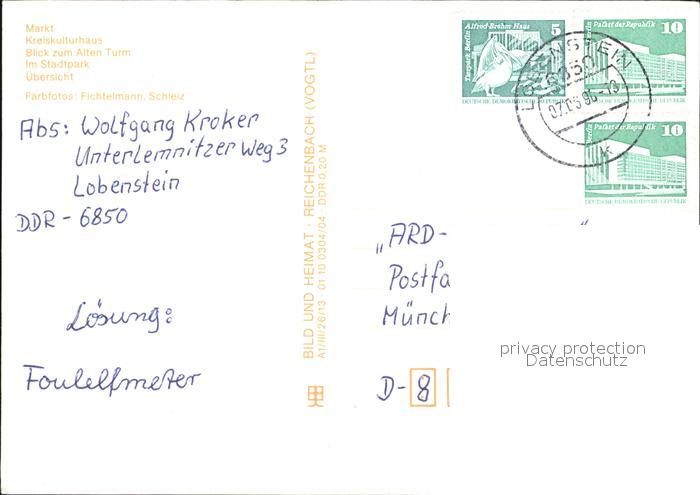 Markt
Kreiskulturhaus
Blick zum Alten Turm
Im Stadtpark
Übersicht
Farbfotos: Fichtelmann, Schleiz
Abs: Wolfgang Kroker
Unterlemnitzer Weg 3
Lobenstein
DDR - 6850
Lösung:
Foulelfmeter
BILD UND HEIMAT · REICHENBACH (VOGTL)
A1/III/26/13 01 10 0304/04 DDR 0,20 M
Tierpark Berlin Alfred-Brehm-Haus 5
DEUTSCHE DEMOKRATISCHE REPUBLIK
Berlin Palast der Republik 10
Berlin Palast der Republik 10
DEUTSCHE DEMOKRATISCHE REPUBLIK
LOBENSTEIN
6850
"ARD-
Postfa
Münch
D-8
privacy protection
Datenschutz